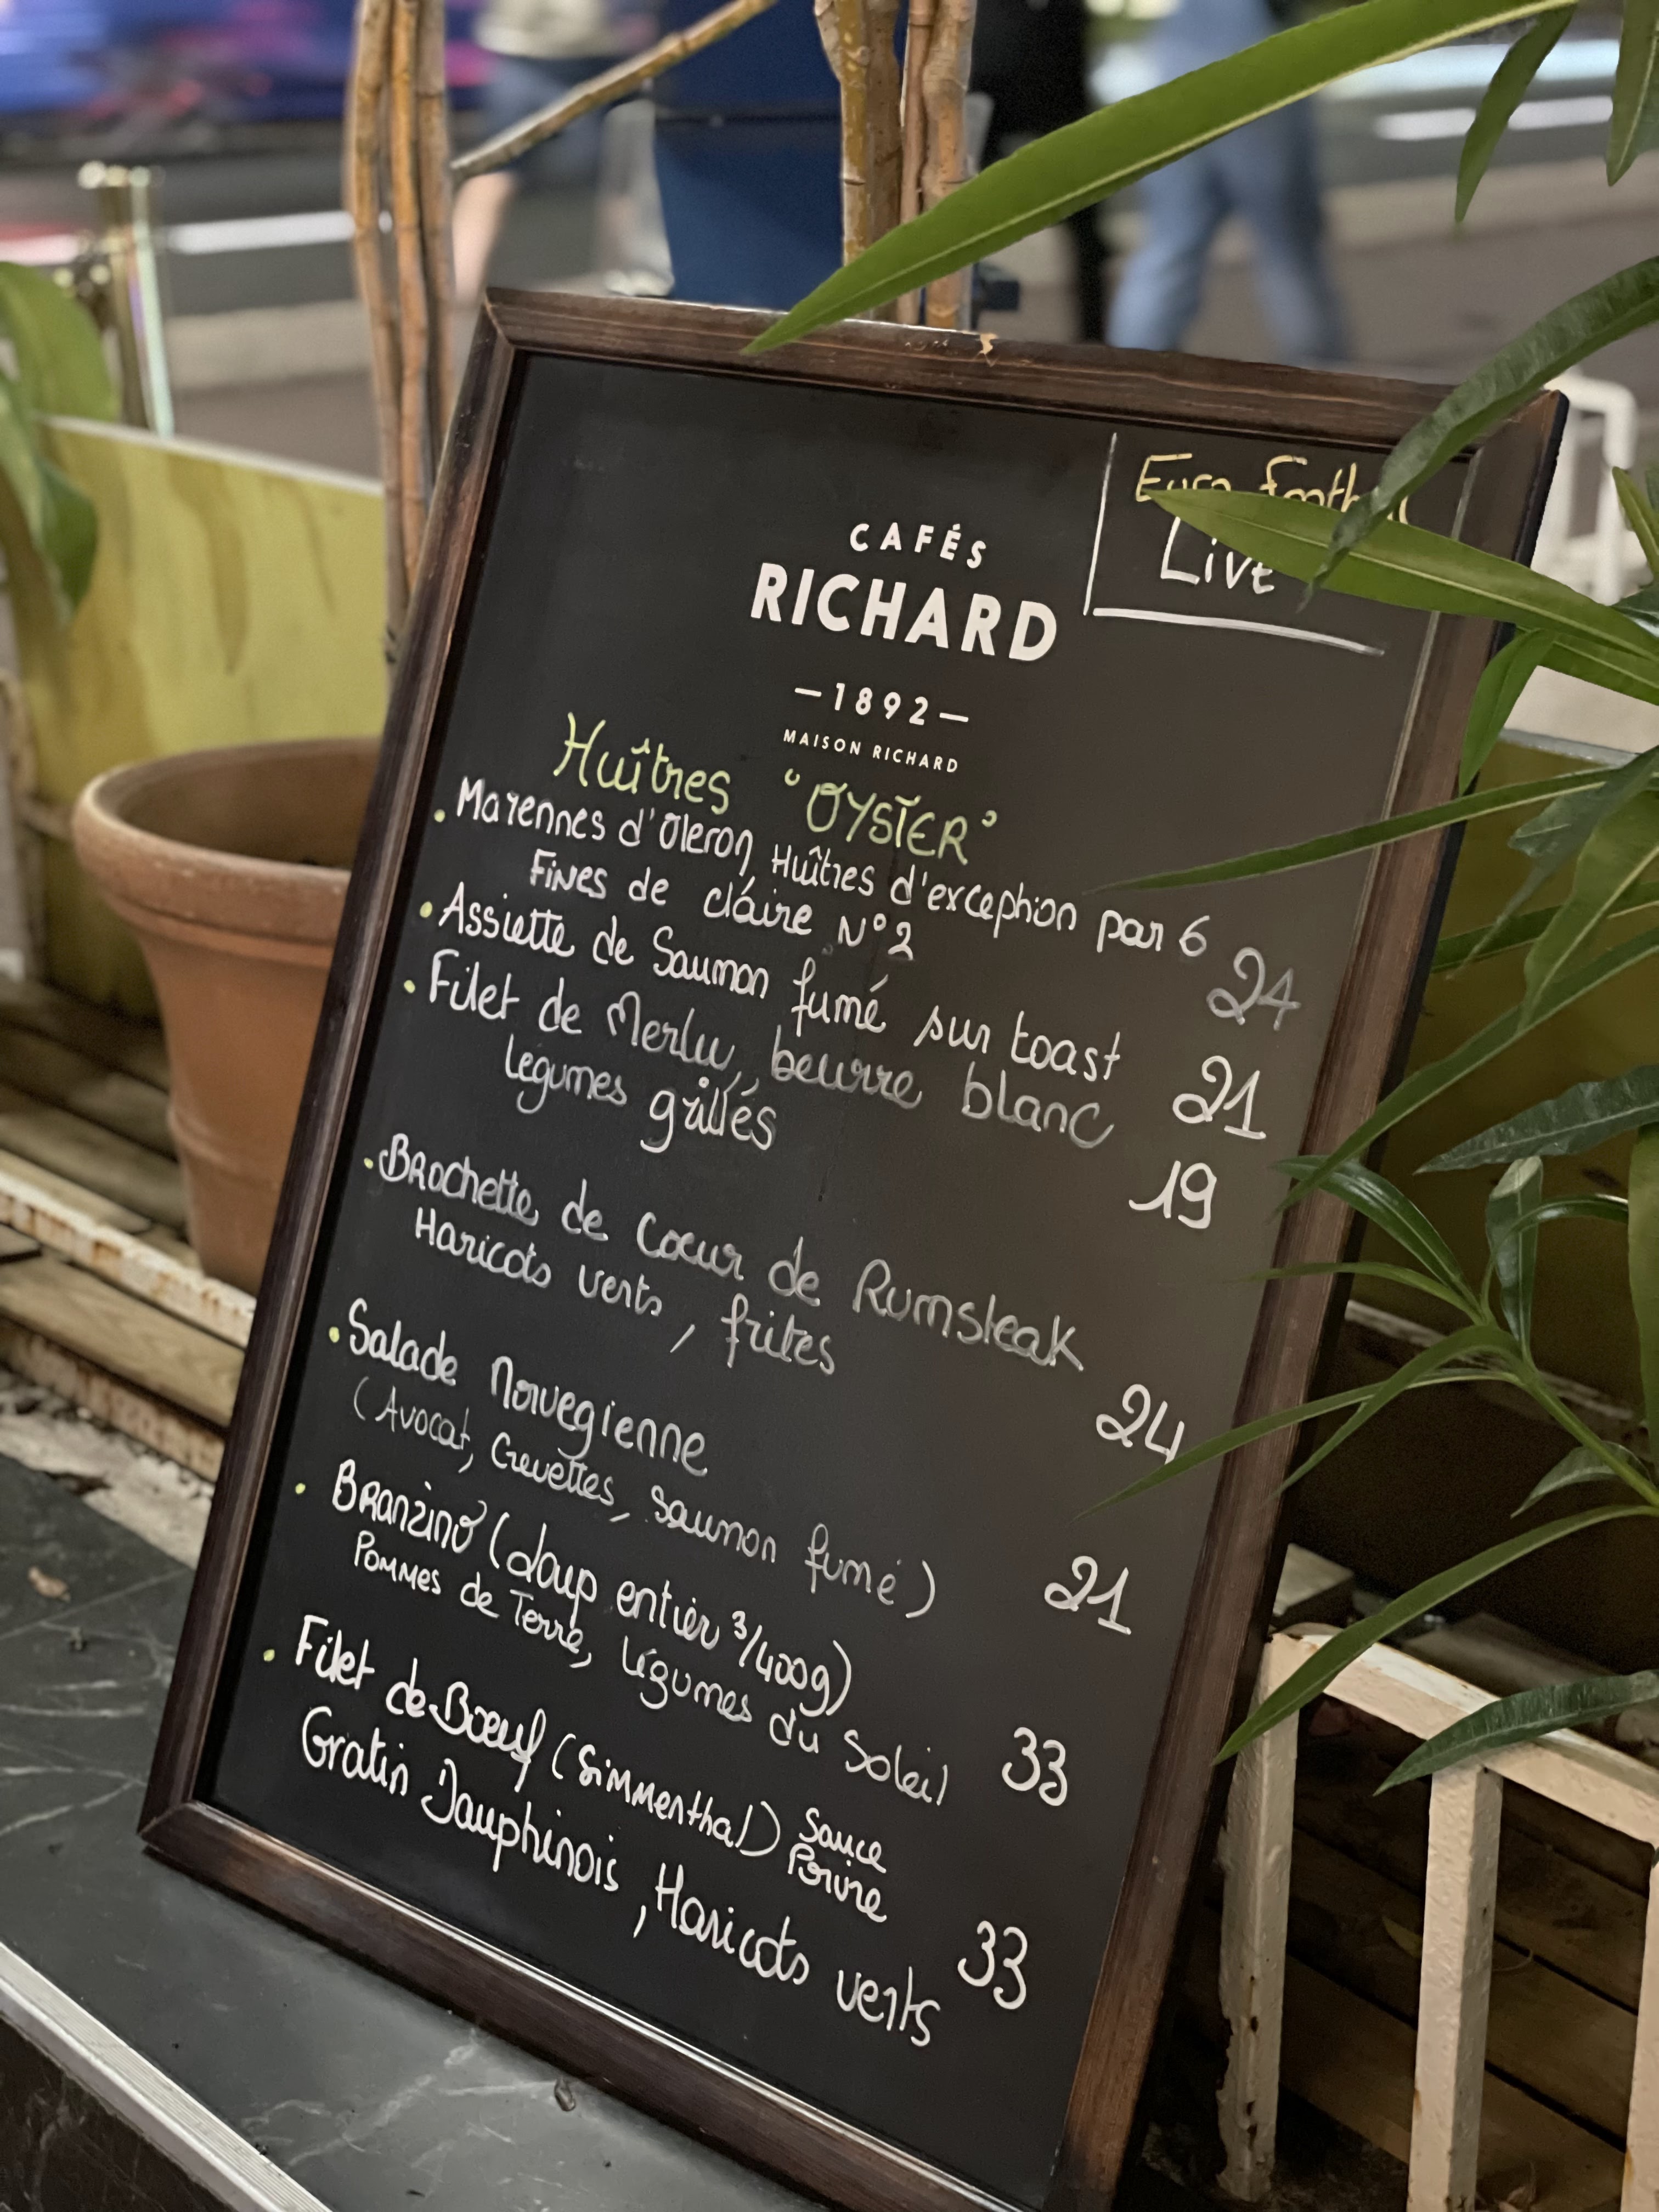 Euro
Live
CAFÉS
RICHARD
—1892—
MAISON RICHARD
Huîtres "OYSTER"
. Marennes d'Oleron, Huîtres d'exception par 6
Fines de claire N°2 24
. Assiette de Saumon fumé sur toast 21
. Filet de Merlu, beurre blanc
légumes grillés 19
. Brochette de Coeur de Rumsteak
Haricots verts, frites 24
. Salade Norvegienne
(Avocat, Crevettes, saumon fumé) 21
. Branzino (loup entier 3/400g)
Pommes de Terre, légumes du soleil 33
. Filet de Boeuf (Simmenthal) Sauce Poivre
Gratin Dauphinois, Haricots verts 33